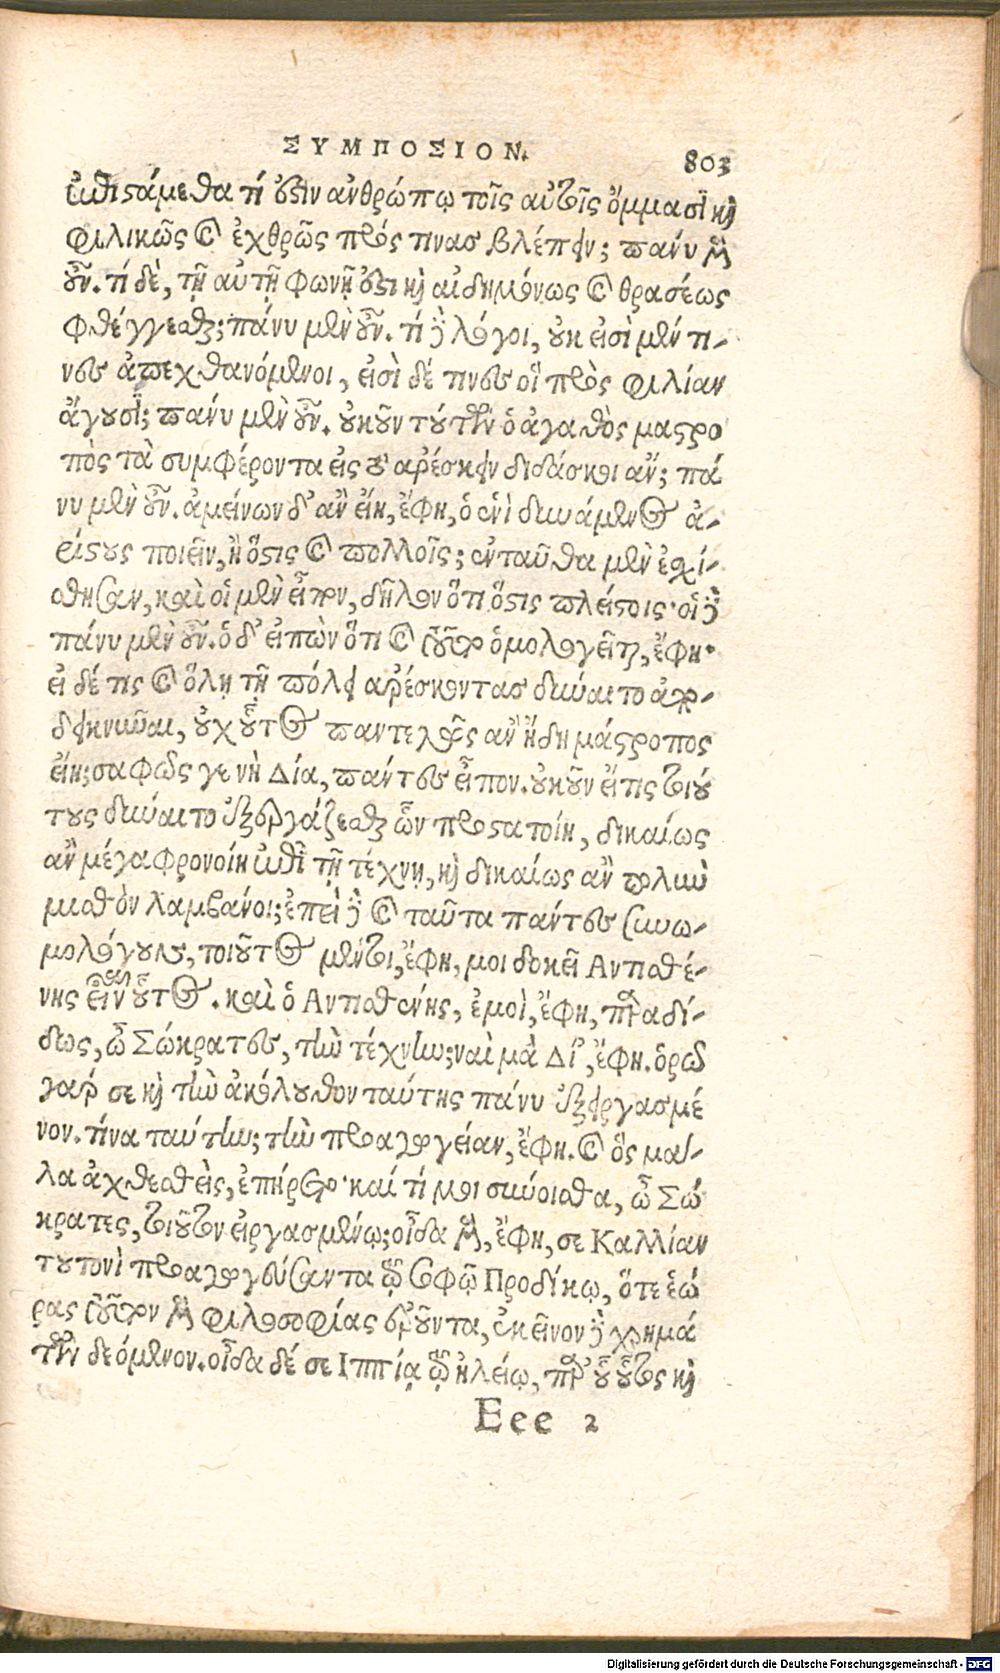 ΣΥΜΠΟΣΙΟΝ. 803
ἐπιστάμεθα τί ἔστιν ἀνθρώπῳ τοῖς αὐτοῖς ὄμμασι καὶ
φιλικῶς καὶ ἐχθρῶς πρός τινας βλέπειν; πάνυ μὲν
οὖν. τί δὲ, τῇ αὐτῇ φωνῇ ἔστι καὶ αἰδημόνως καὶ θρασέως
φθέγγεσθαι; πάνυ μὲν οὖν. τί δὲ λόγοι, οὐκ εἰσὶ μέν τι-
νες ἀπεχθανόμενοι, εἰσὶ δέ τινες οἳ πρὸς φιλίαν
ἄγουσι; πάνυ μὲν οὖν. οὐκοῦν τούτων ὁ ἀγαθὸς μαστρο
πὸς τὰ συμφέροντα εἰς τὸ ἀρέσκειν διδάσκοι ἄν; πά
νυ μὲν οὖν. ἀμείνων δ' ἂν εἴη, ἔφη, ὁ ἑνὶ δυνάμενος ἀ-
ρέστους ποιεῖν, ἢ ὅστις καὶ πολλοῖς; ἐνταῦθα μὲν ἐσχί-
σθησαν, καὶ οἱ μὲν εἶπον, δῆλον ὅτι ὅστις πλείστοις· οἱ δὲ
πάνυ μὲν οὖν. ὁ δ' εἰπὼν ὅτι καὶ τοῦτο ὁμολογεῖται, ἔφη·
εἰ δέ τις καὶ ὅλῃ τῇ πόλει ἀρέσκοντας δύναιτο ἀπο-
δεικνύναι, οὐχ οὗτος παντελῶς ἂν ἤδη μάστροπος
εἴη; σαφῶς γε νὴ Δία, πάντες εἶπον. οὐκοῦν εἴ τις τοιού
τους δύναιτο ἐξεργάζεσθαι ὧν προστατοίη, δικαίως
ἂν μέγα φρονοίη ἐπὶ τῇ τέχνῃ, καὶ δικαίως ἂν πολὺν
μισθὸν λαμβάνοι; ἐπεὶ δὲ καὶ ταῦτα πάντες συνω-
μολόγουν, τοιοῦτος μέντοι, ἔφη, μοι δοκεῖ Αντισθέ-
νης εἶναι οὗτος. καὶ ὁ Αντισθένης, ἐμοὶ, ἔφη, παραδί-
δως, ὦ Σώκρατες, τὴν τέχνην; ναὶ μὰ Δί', ἔφη. ὁρῶ
γάρ σε καὶ τὴν ἀκόλουθον ταύτης πάνυ ἐξειργασμέ
νον. τίνα ταύτην; τὴν προαγωγείαν, ἔφη. καὶ ὃς μάλ-
λα ἀχθεσθεὶς, ἐπήρετο· καὶ τί μοι σύνοισθα, ὦ Σώ
κρατες, τοιοῦτον εἰργασμένῳ; οἶδα μὲν, ἔφη, σε Καλλίαν
τουτονὶ προαγωγεύσαντα τῷ σοφῷ Προδίκῳ, ὅτε ἑώ
ρας τοῦτον μὲν φιλοσοφίας ἐρῶντα, ἐκεῖνον δὲ χρημά
των δεόμενον. οἶδα δέ σε Ιππίᾳ τῷ ἠλείῳ, παρ' οὗ οὗτος καὶ
Eee 2
Digitalisierung gefördert durch die Deutsche Forschungsgemeinschaft - DFG